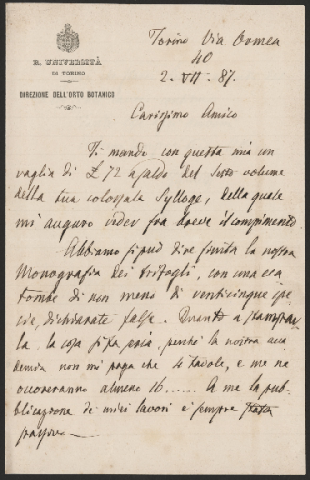 R. UNIVERSITÀ
DI TORINO
DIREZIONE DELL'ORTO BOTANICO
Torino Via Ormea
40
2. VII. 87.
Carissimo Amico
Ti mando con questa mia un
vaglia di £ 72 a saldo del sesto volume
della tua colossale Sylloge, della quale
mi auguro veder fra breve il compimento.
Abbiamo si può dire finita la nostra
Monografia dei trifogli, con una eca
tombe di non meno di venticinque spe
cie, dichiarate false. Quanto a stampar
la, la cosa si fa seria, perché la nostra acca
demia non mi paga che 4 tavole, e me ne
occorreranno almeno 16...... A me la pub-
blicazione di miei lavori è sempre stata